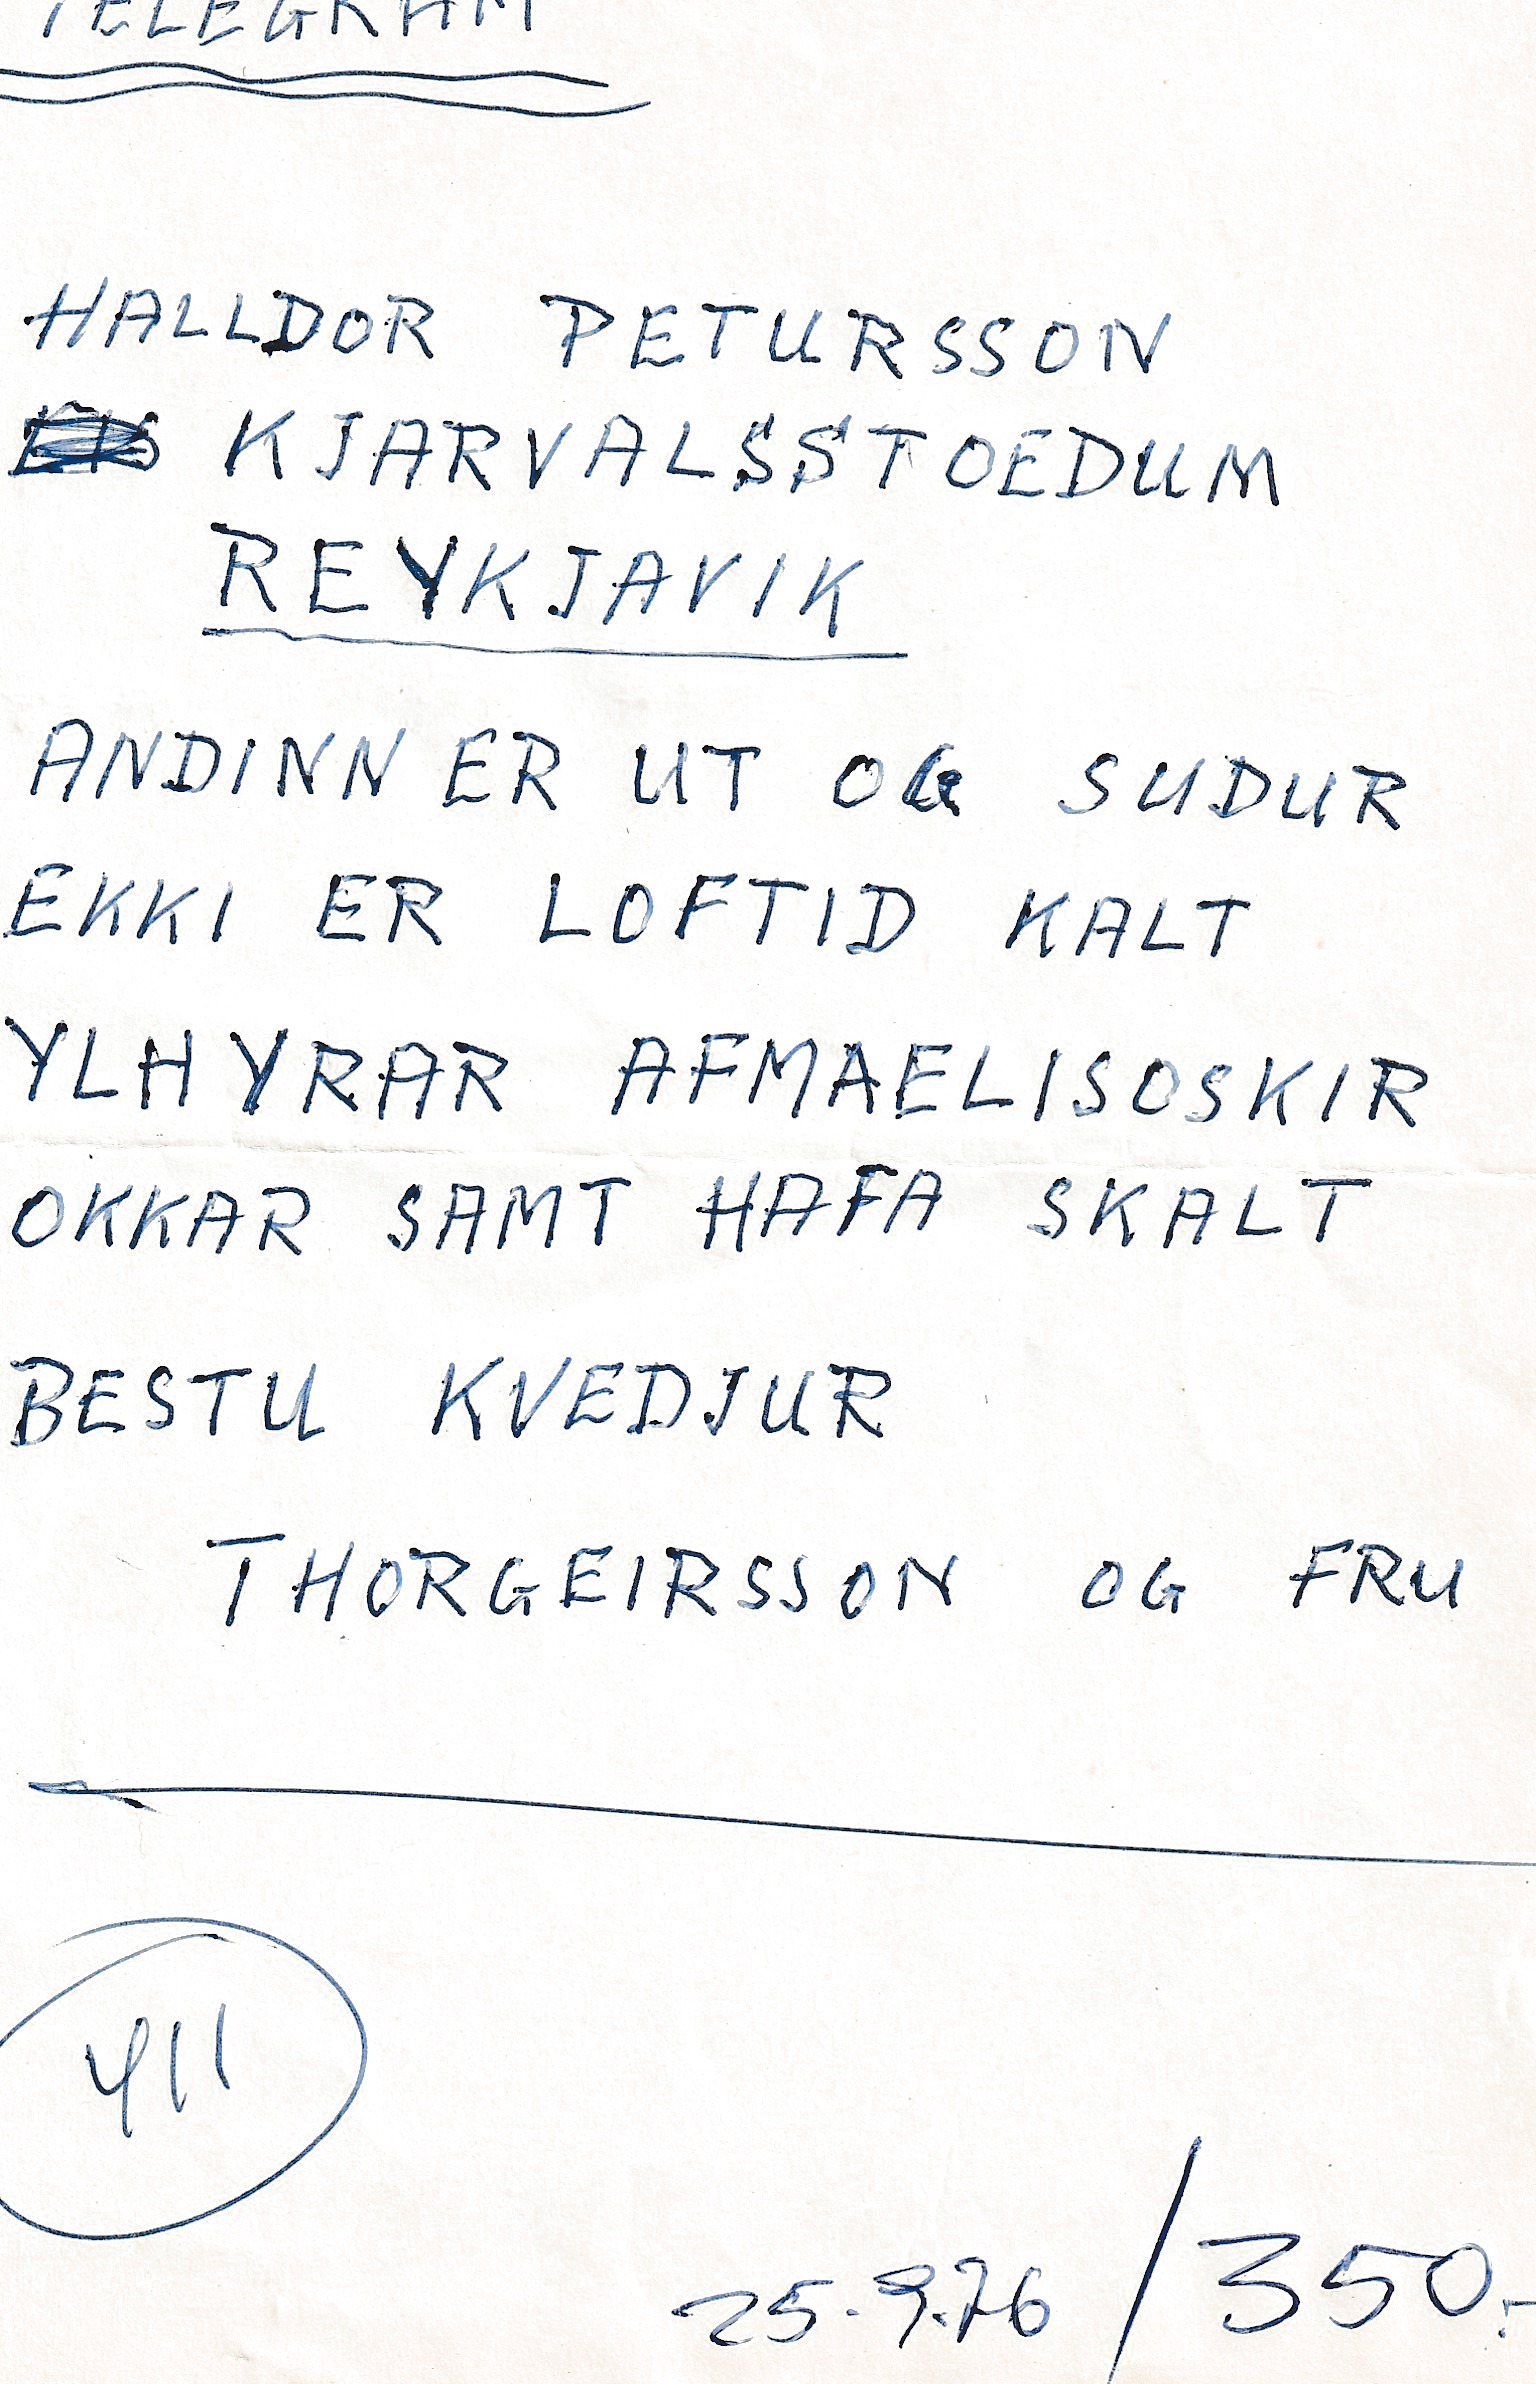 TELEGRAM
HALLDOR PETURSSON
KJARVALSSTOEDUM
REYKJAVIK
ANDINN ER UT OG SUDUR
EKKI ER LOFTID KALT
YLHYRAR AFMAELISOSKIR
OKKAR SAMT HAFA SKALT
BESTU KVEDJUR
THORGEIRSSON OG FRU
411
25.9.76 / 350.-